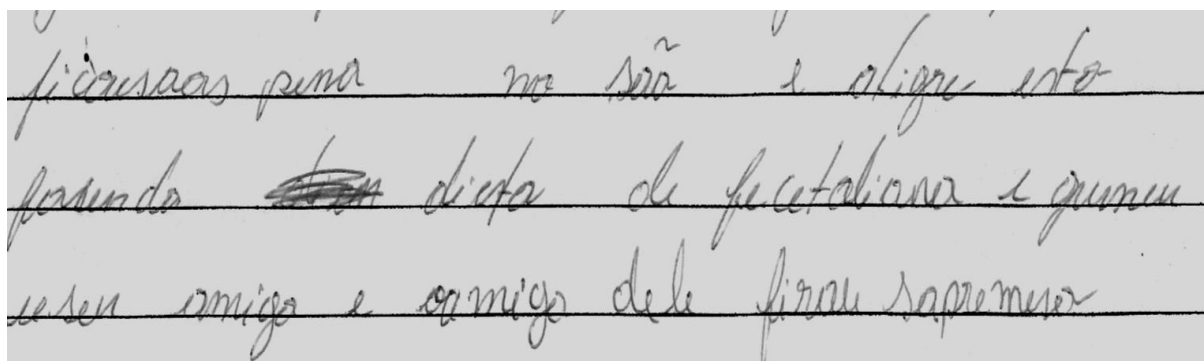 ficousaas pena no sãã e aligre esta
fasendo dieta de fecetaliana e gumeu
useu amigo e oamigo dele firou sapremeror